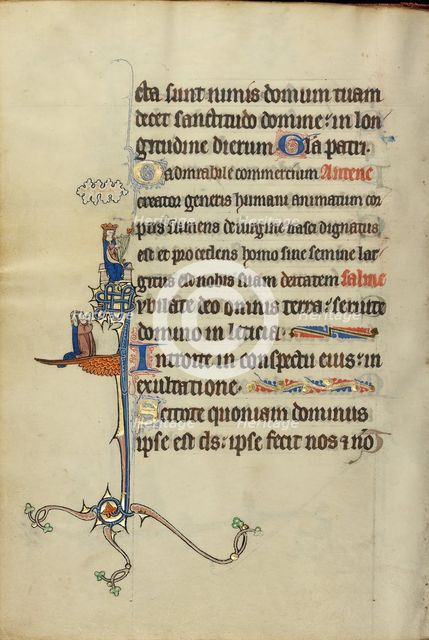 cta sunt nimis domum tuam
decet sanctitudo domine: in lon
gitudine dierum Gl'a patri.
O admirabile commercium Antene
creator generis humani animatum cor
pus sumens de uirgine nasci dignatus
est et procedens homo sine semine lar
gitus est nobis suam deitatem
ybilate deo omnis terra: seruite
domino in leticia.
Introite in conspectu eius: in
exultatione.
Scitote quoniam dominus
ipse est ds: ipse fecit nos & no
Heritage
Heritage
Heritage
Heritage
Heritage
Heritage